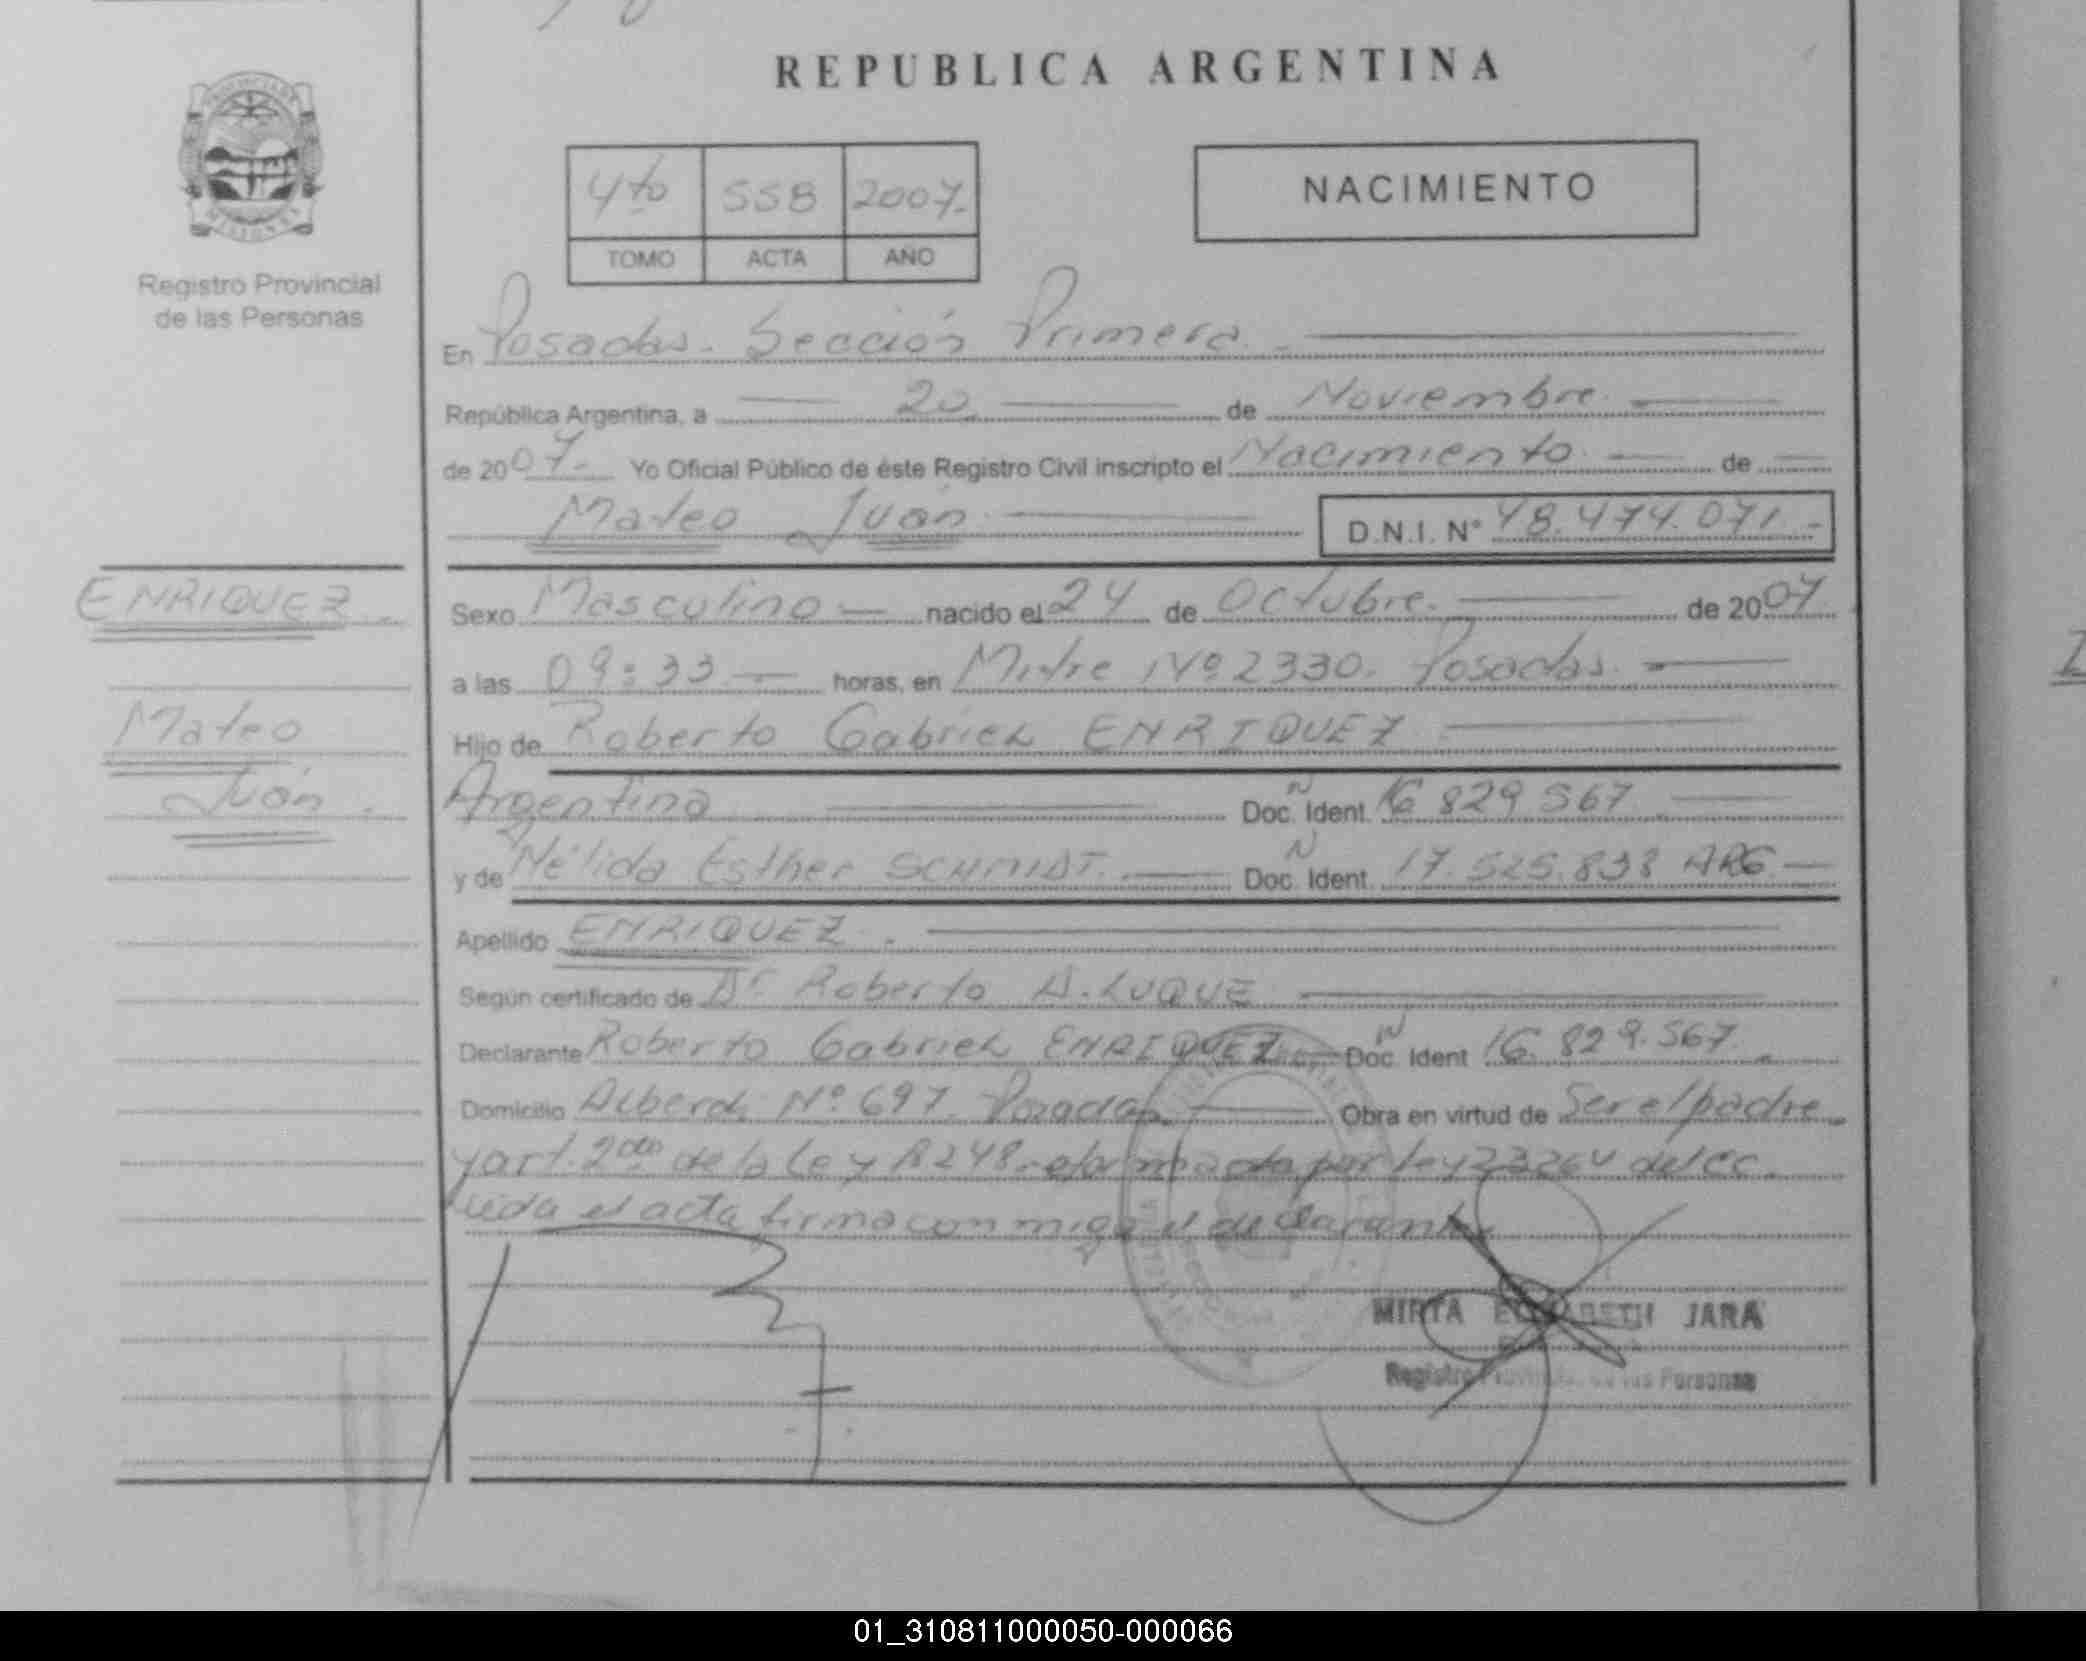 REPUBLICA ARGENTINA
PROVINCIA DE
MISIONES
Registro Provincial
de las Personas
4to 558 2007.-
TOMO ACTA AÑO
NACIMIENTO
En Posadas. Sección Primera.-
República Argentina, a 20 de Noviembre.
de 2007.- Yo Oficial Público de éste Registro Civil inscripto el Nacimiento. de
Mateo Juán D.N.I. N° 48.474.071.-
ENRIQUEZ.-
Mateo
Juán.
Sexo Masculino nacido el 24 de Octubre. de 2007.
a las 09:33 horas, en Mitre Nº 2330. Posadas.
Hijo de Roberto Gabriel ENRIQUEZ
Argentina Doc. Ident. N 16 829 567
y de Nélida Esther SCHMIDT. Doc. Ident. N 17.525.838 ARG.
Apellido ENRIQUEZ.
Según certificado de Dr. Roberto A. LUQUE
Declarante Roberto Gabriel ENRIQUEZ Doc. Ident N 16.829.567.
Domicilio Alberdi Nº 697. Posadas. Obra en virtud de Ser el padre
y art. 2do de la Ley 18248 por ley 23264 del CC.
Leida el acta firma con migo el declarante
MIRTA ELIZABETH JARA
Registro Provincial de las Personas
01_310811000050-000066